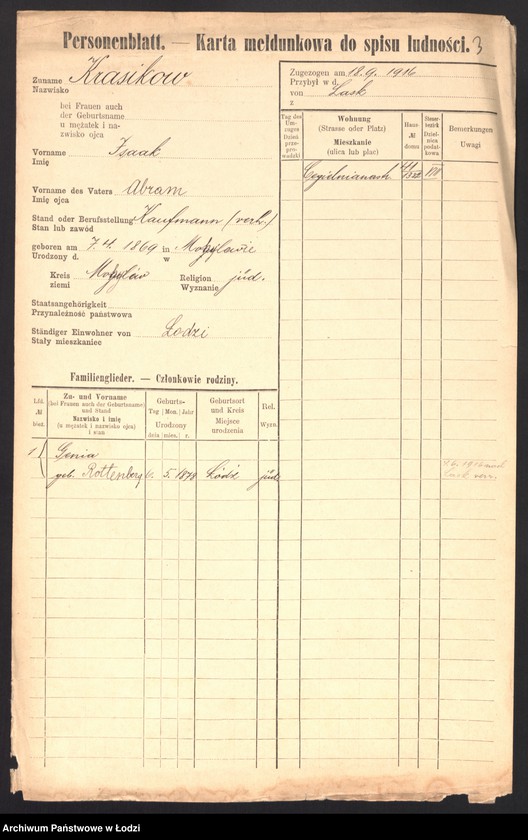 Personenblatt. — Karta meldunkowa do spisu ludności. 3
Zuname Krasikow
Nazwisko
bei Frauen auch
der Geburtsname
u mężatek i na-
zwisko ojca
Vorname Izaak
Imię
Vorname des Vaters Abram
Imię ojca
Stand oder Berufsstellung Kaufmann (verh.)
Stan lub zawód
geboren am 7. 1869 in
Urodzony d. w
Kreis
ziemi
Religion jüd.
Wyznanie
Staatsangehörigkeit
Przynależność państwowa
Ständiger Einwohner von Lodzi
Stały mieszkaniec
Zugezogen am 18.9. 1916
Przybył w d.
von Lask
z
Tag des Um-zuges Dzień prze-pro-wadzki
Wohnung
(Strasse oder Platz)
Mieszkanie
(ulica lub plac)
Haus-
№
domu
Steuer-
bezirk
Dziel-
nica
podat-
kowa
Bemerkungen
Uwagi
Cegielnianach 44
Familienglieder. — Członkowie rodziny.
Lfd.
№
bież.
Zu- und Vorname
(bei Frauen auch der Geburtsname)
und Stand
Nazwisko i imię
(u mężatek i nazwisko ojca)
i stan
Geburts-
Tag Mon. Jahr
Urodzony
dnia mies. r.
Geburtsort
und Kreis
Miejsce
urodzenia
Rel.
Wyzn.
1 Genia
geb. Rottenberg 5. 1878 Łódź jüd
Archiwum Państwowe w Łodzi